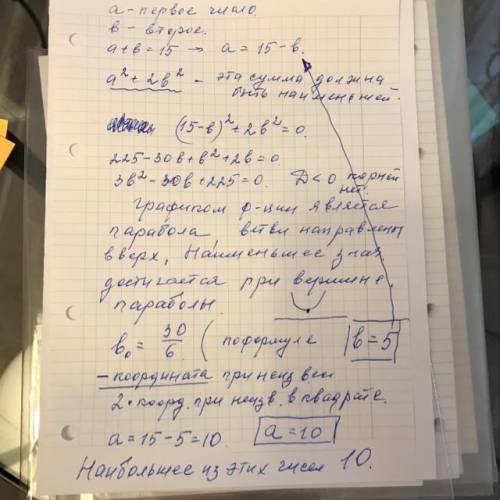 а - первое число.
в - второе.
а+в=15 → а = 15-в.
а² + 2в² - эта сумма должна
быть наименьшей.
(15-в)²+2в²=0.
225-30в+в²+2в=0
3в²-30в+225=0. D<0 корней
нет.
Графиком ф-ции является
парабола ветви направлены
вверх, Наименьшее знач
достигается при вершине
параболы.
в₀ = 30/6 ( по формуле в=5
- координата при неизвест
2 • коорд. при неизв. в квадрате.
а=15-5=10. а=10
Наибольшее из этих чисел 10.